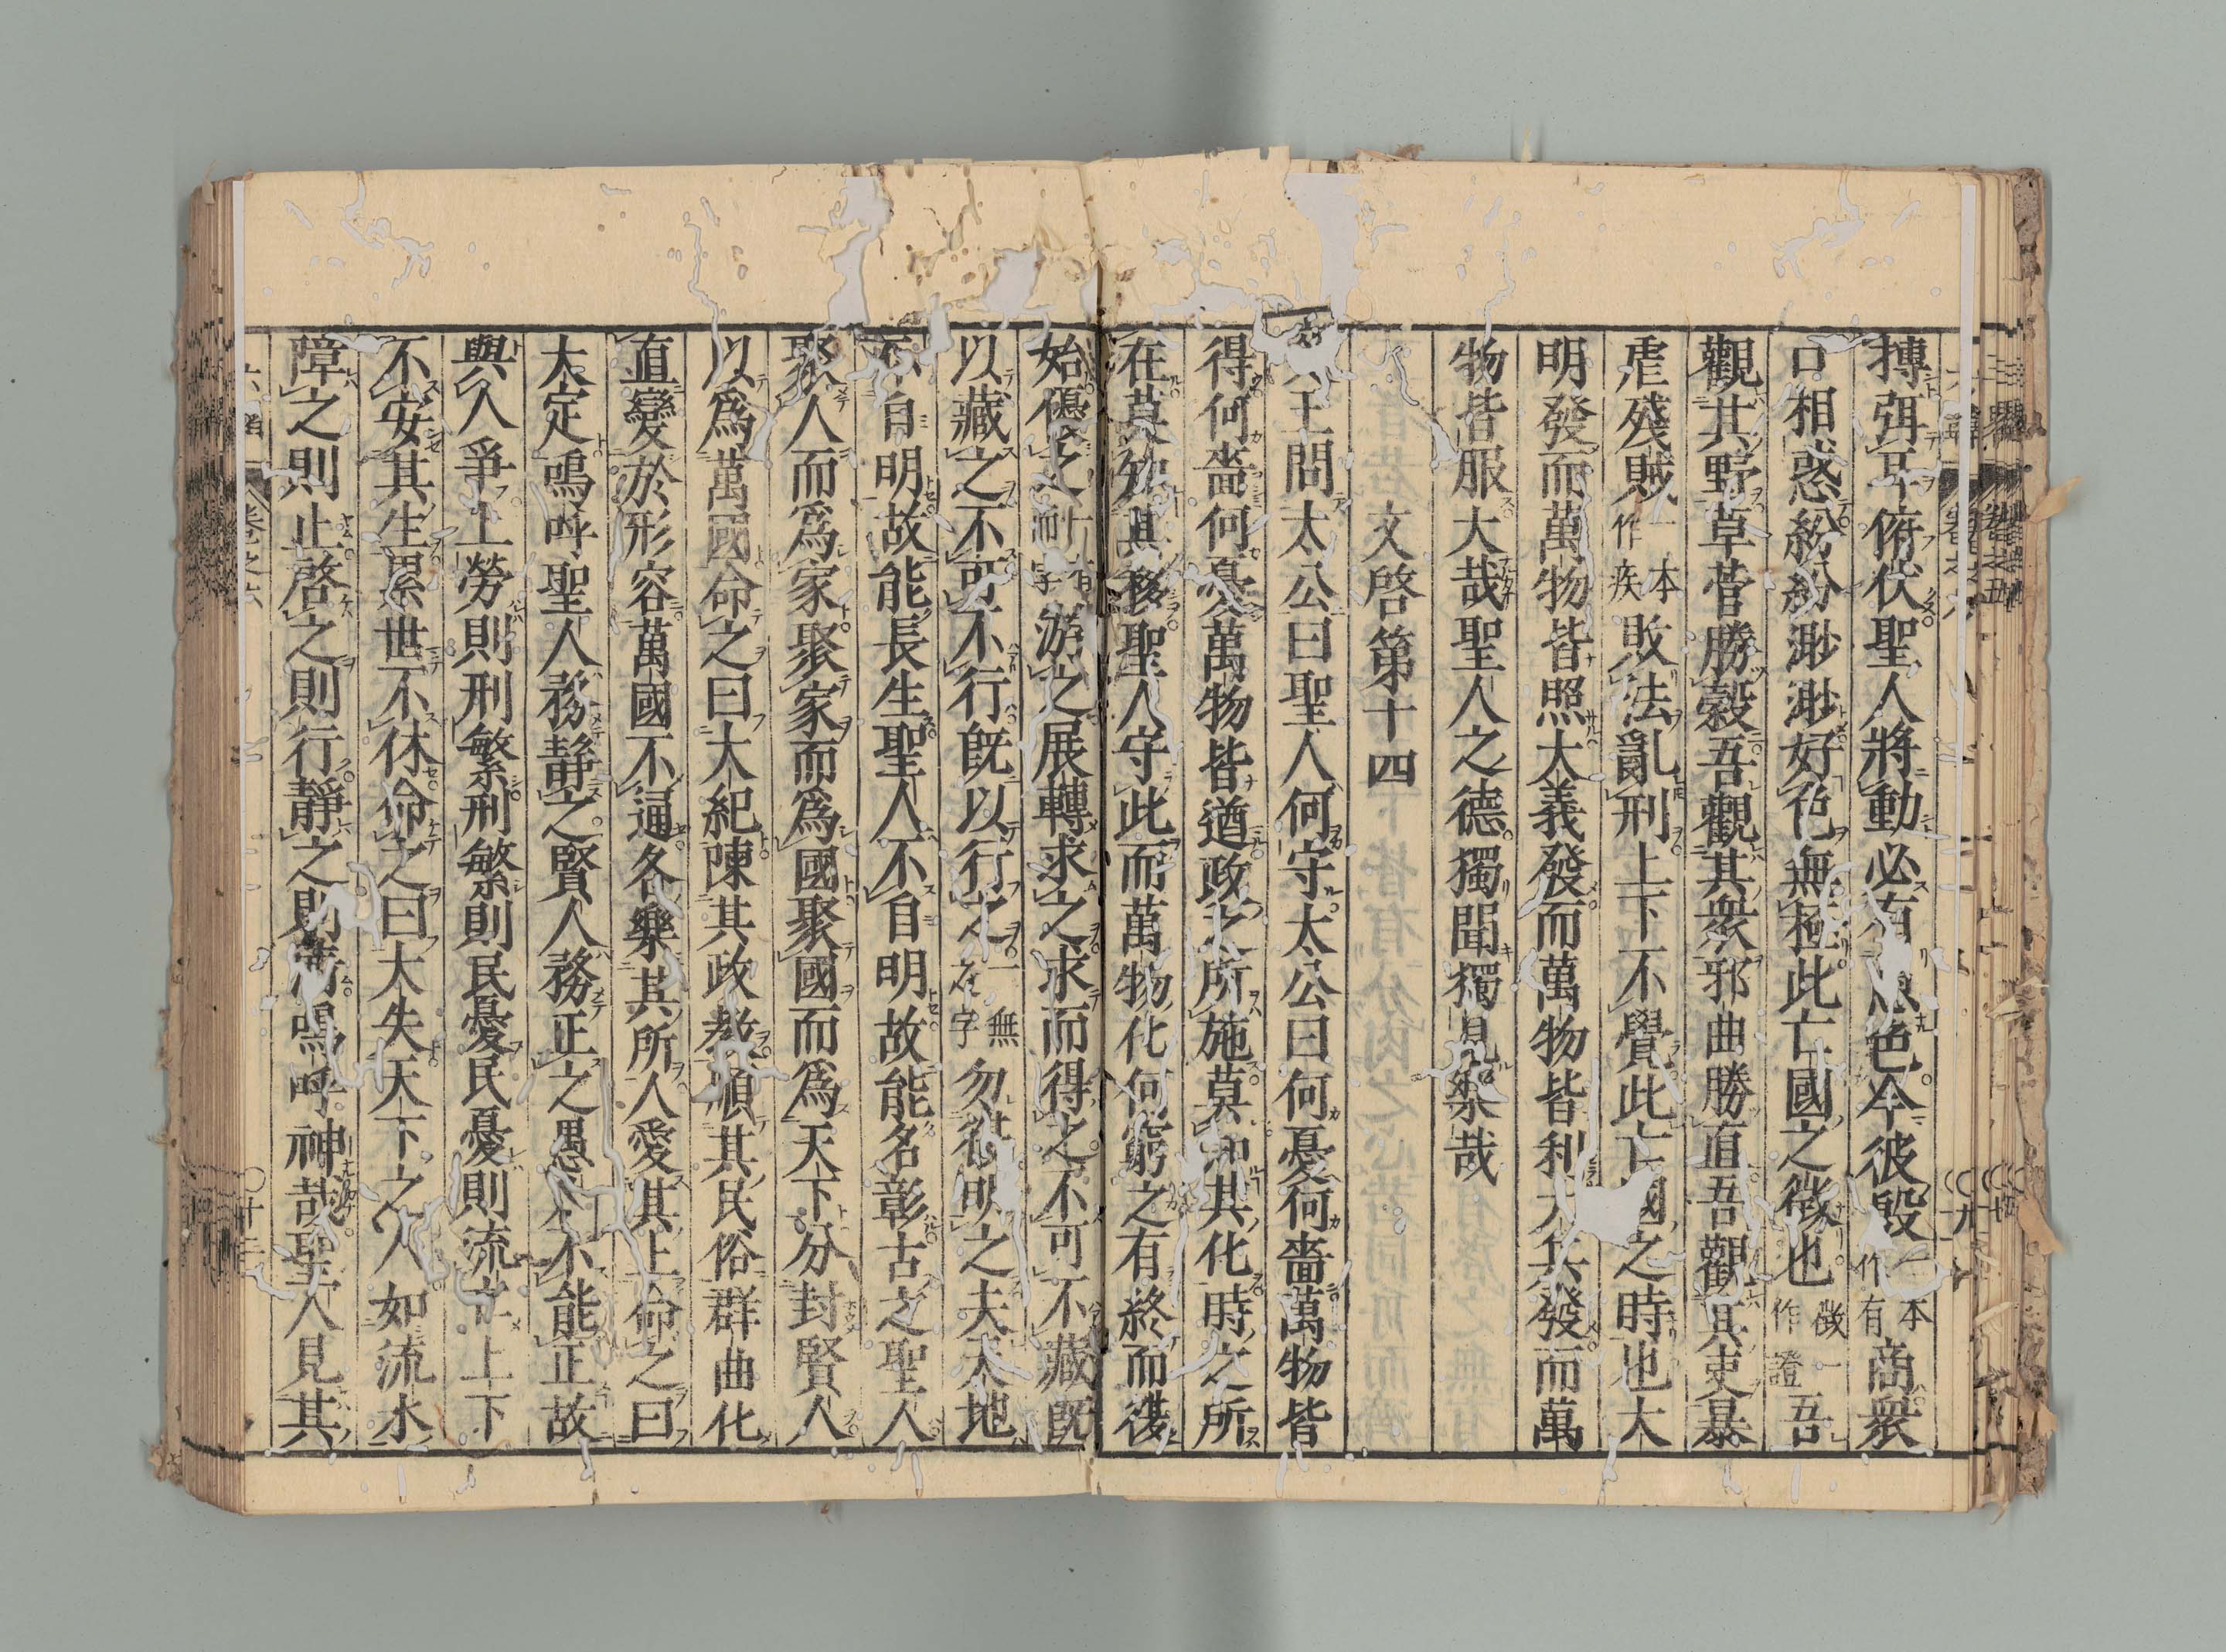 搏弭耳俯伏聖人將動必有愚色今彼殷一本作有商衆
口相惑紛紛渺渺好色無極此亡國之徵也徵一作證吾
觀其野草菅勝穀吾觀其衆邪曲勝直吾觀其吏暴
虐殘賊一本作疾敗法亂刑上下不覺此亡國之時也大
明發而萬物皆照大義發而萬物皆利大兵發而萬
物皆服大哉聖人之德獨聞獨見樂哉
文啓第十四
文王問太公曰聖人何守太公曰何憂何嗇萬物皆
得何嗇何憂萬物皆遒政之所施莫知其化時之所
在莫知其移聖人守此而萬物化何窮之有終而復
始優之游之展轉求之求而得之不可不藏既
以藏之不可不行既以行之一無在字勿復明之夫天地
不自明故能長生聖人不自明故能名彰古之聖人
聚人而爲家聚家而爲國聚國而爲天下分封賢人
以爲萬國命之曰大紀陳其政教順其民俗群曲化
直變於形容萬國不通各樂其所人愛其上命之曰
大定嗚呼聖人務靜之賢人務正之愚人不能正故
與人爭上勞則刑繁刑繁則民憂民憂則流亡上下
不安其生累世不休命之曰大失天下之人如流水
障之則止啓之則行靜之則清嗚呼神哉聖人見其